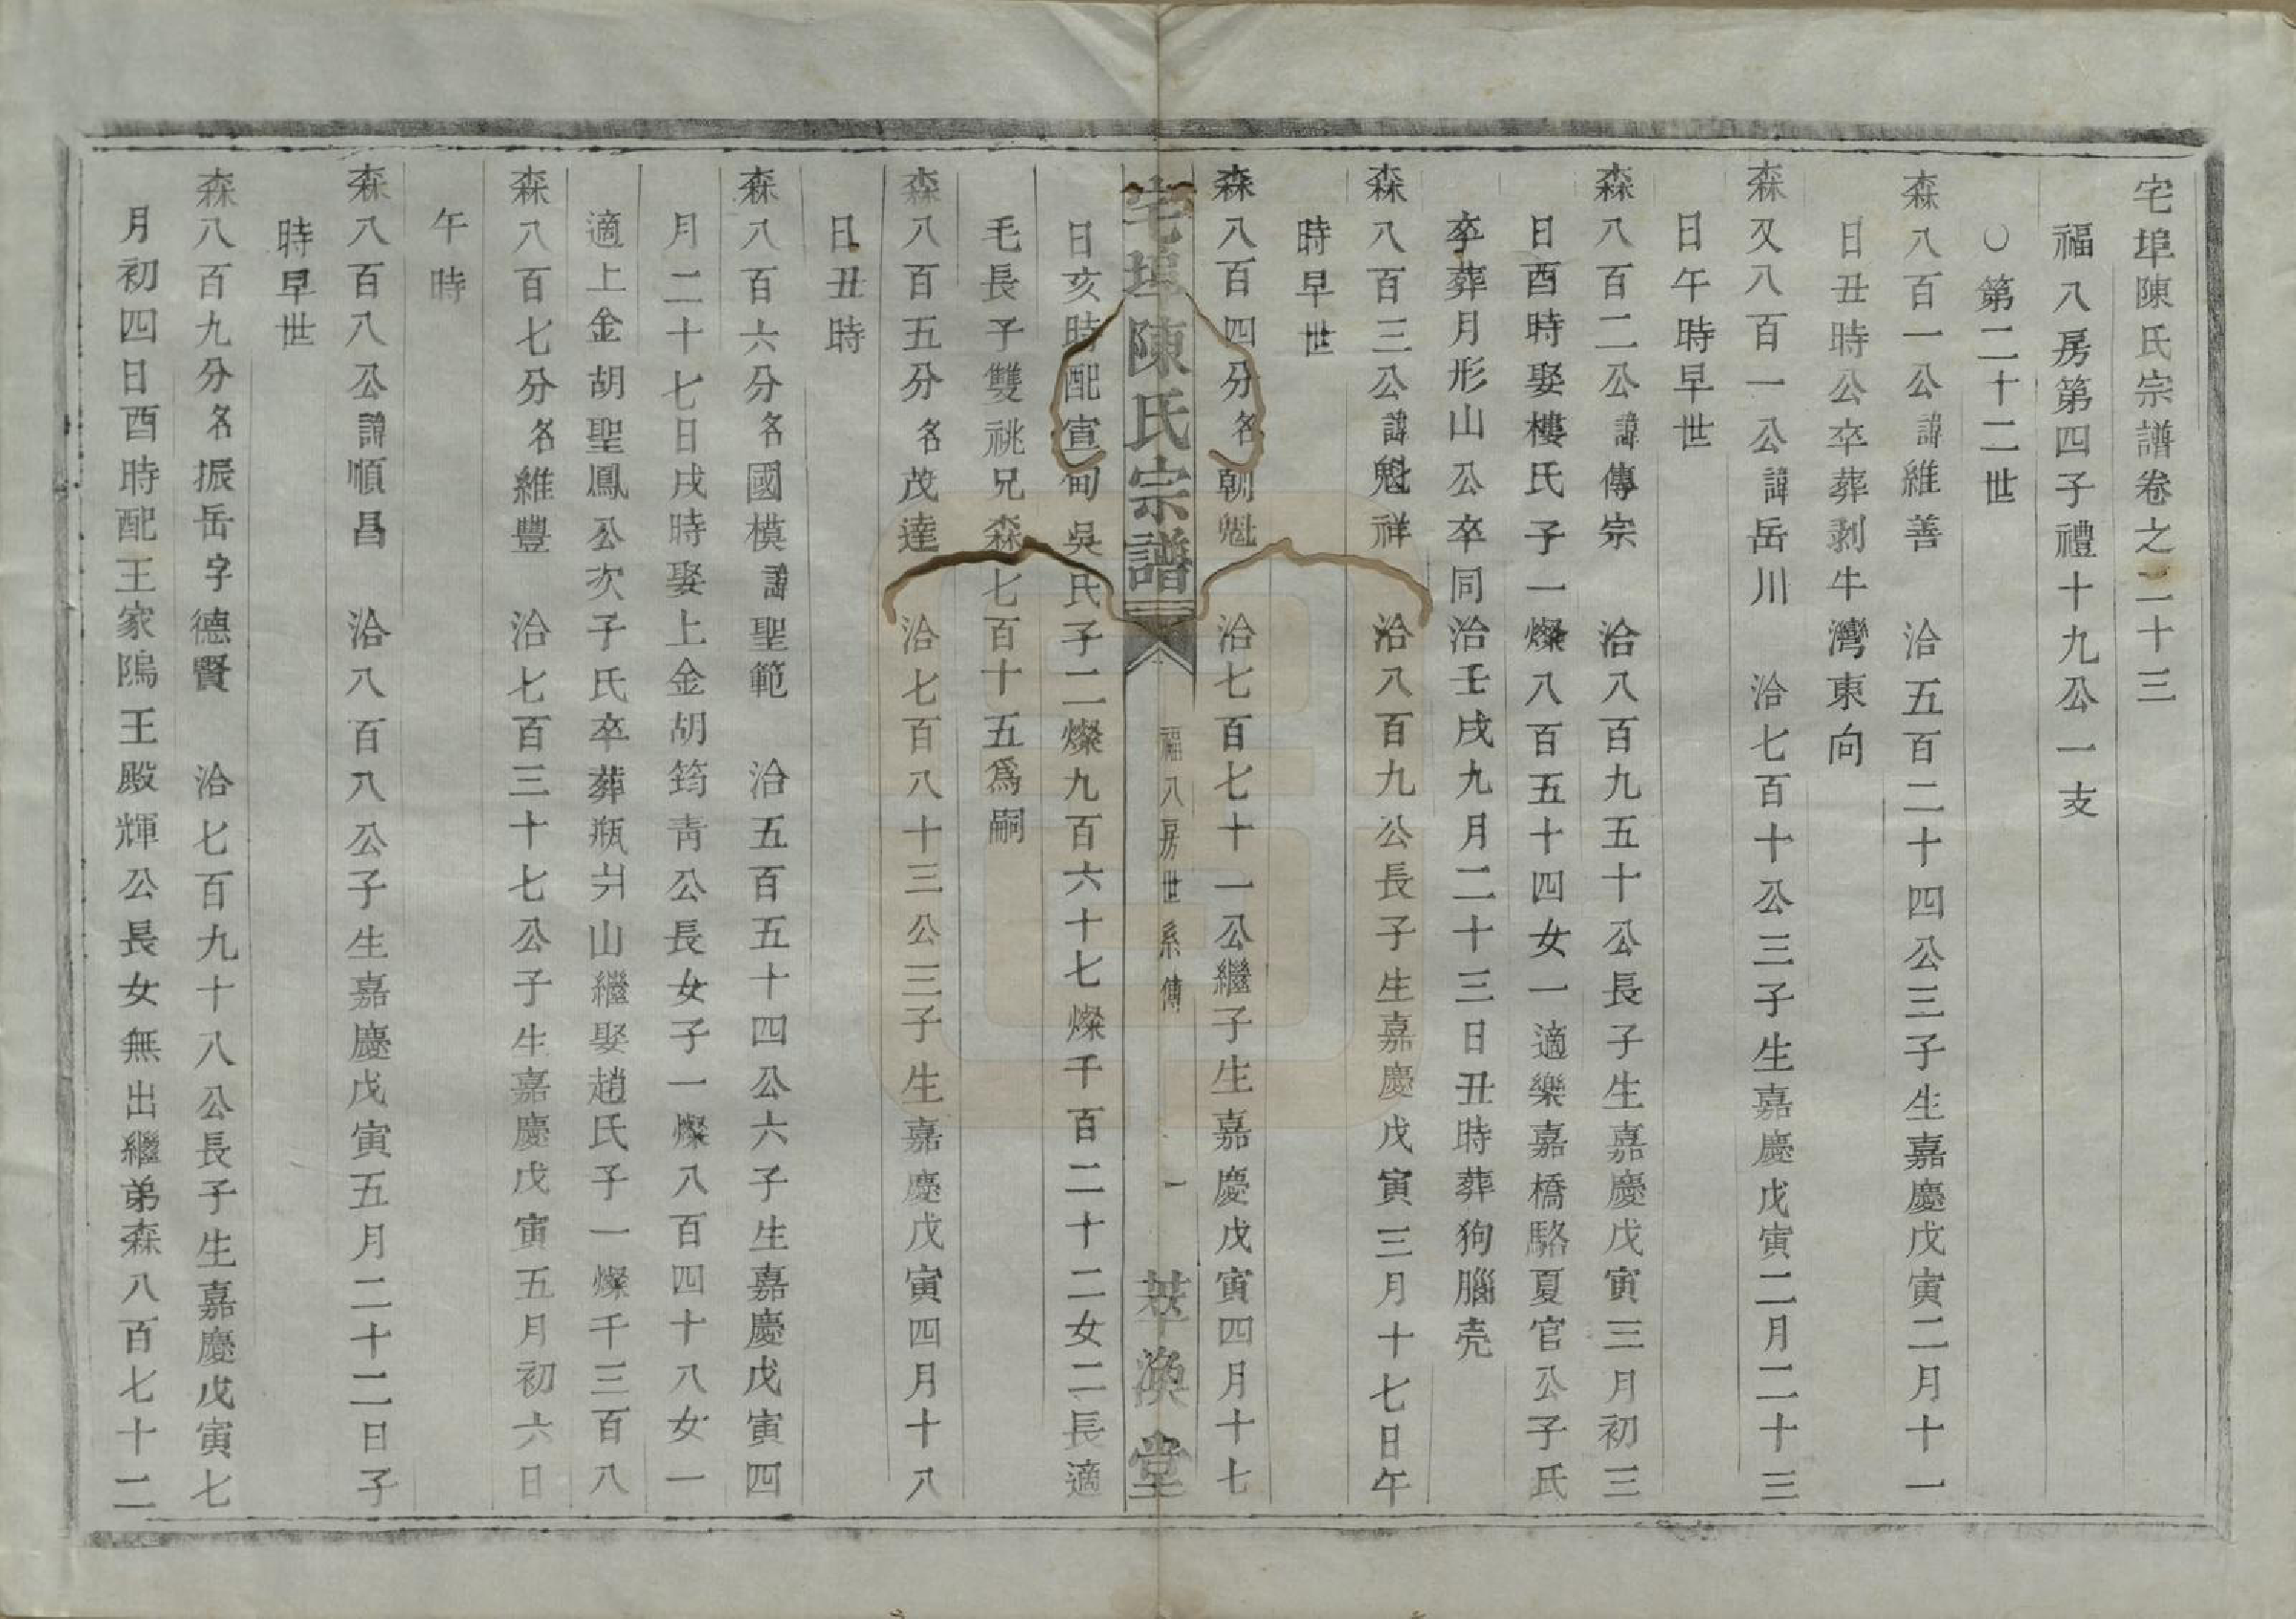 宅埠陳氏宗譜卷之二十三
福八房第四子禮十九公一支
○第二十二世
森八百一公諱維善　洽五百二十四公三子生嘉慶戊寅二月十一
日丑時公卒葬剥牛灣東向
森又八百一公諱岳川　洽七百十公三子生嘉慶戊寅二月二十三
日午時早世
森八百二公諱傳宗　洽八百九五十公長子生嘉慶戊寅三月初三
日酉時娶樓氏子一燦八百五十四女一適樂嘉橋駱夏官公子氏
卒葬月形山公卒同治壬戌九月二十三日丑時葬狗腦壳
森八百三公諱魁祥　洽八百九公長子生嘉慶戊寅三月十七日午
時早世
森八百四分名朝魁　洽七百七十一公繼子生嘉慶戊寅四月十七
宅埠陳氏宗譜　福八房世系傳　一　萃渙堂
日亥時配宣甸吳氏子二燦九百六十七燦千百二十二女二長適
毛長子雙祧兄森七百十五爲嗣
森八百五分名茂達　洽七百八十三公三子生嘉慶戊寅四月十八
日丑時
森八百六分名國模諱聖範　洽五百五十四公六子生嘉慶戊寅四
月二十七日戌時娶上金胡筠靑公長女子一燦八百四十八女一
適上金胡聖鳳公次子氏卒葬瓶爿山繼娶趙氏子一燦千三百八
森八百七分名維豐　洽七百三十七公子生嘉慶戊寅五月初六日
午時
森八百八公諱順昌　洽八百八公子生嘉慶戊寅五月二十二日子
時早世
森八百九分名振岳字德賢　洽七百九十八公長子生嘉慶戊寅七
月初四日酉時配王家隖王殿輝公長女無出繼弟森八百七十二